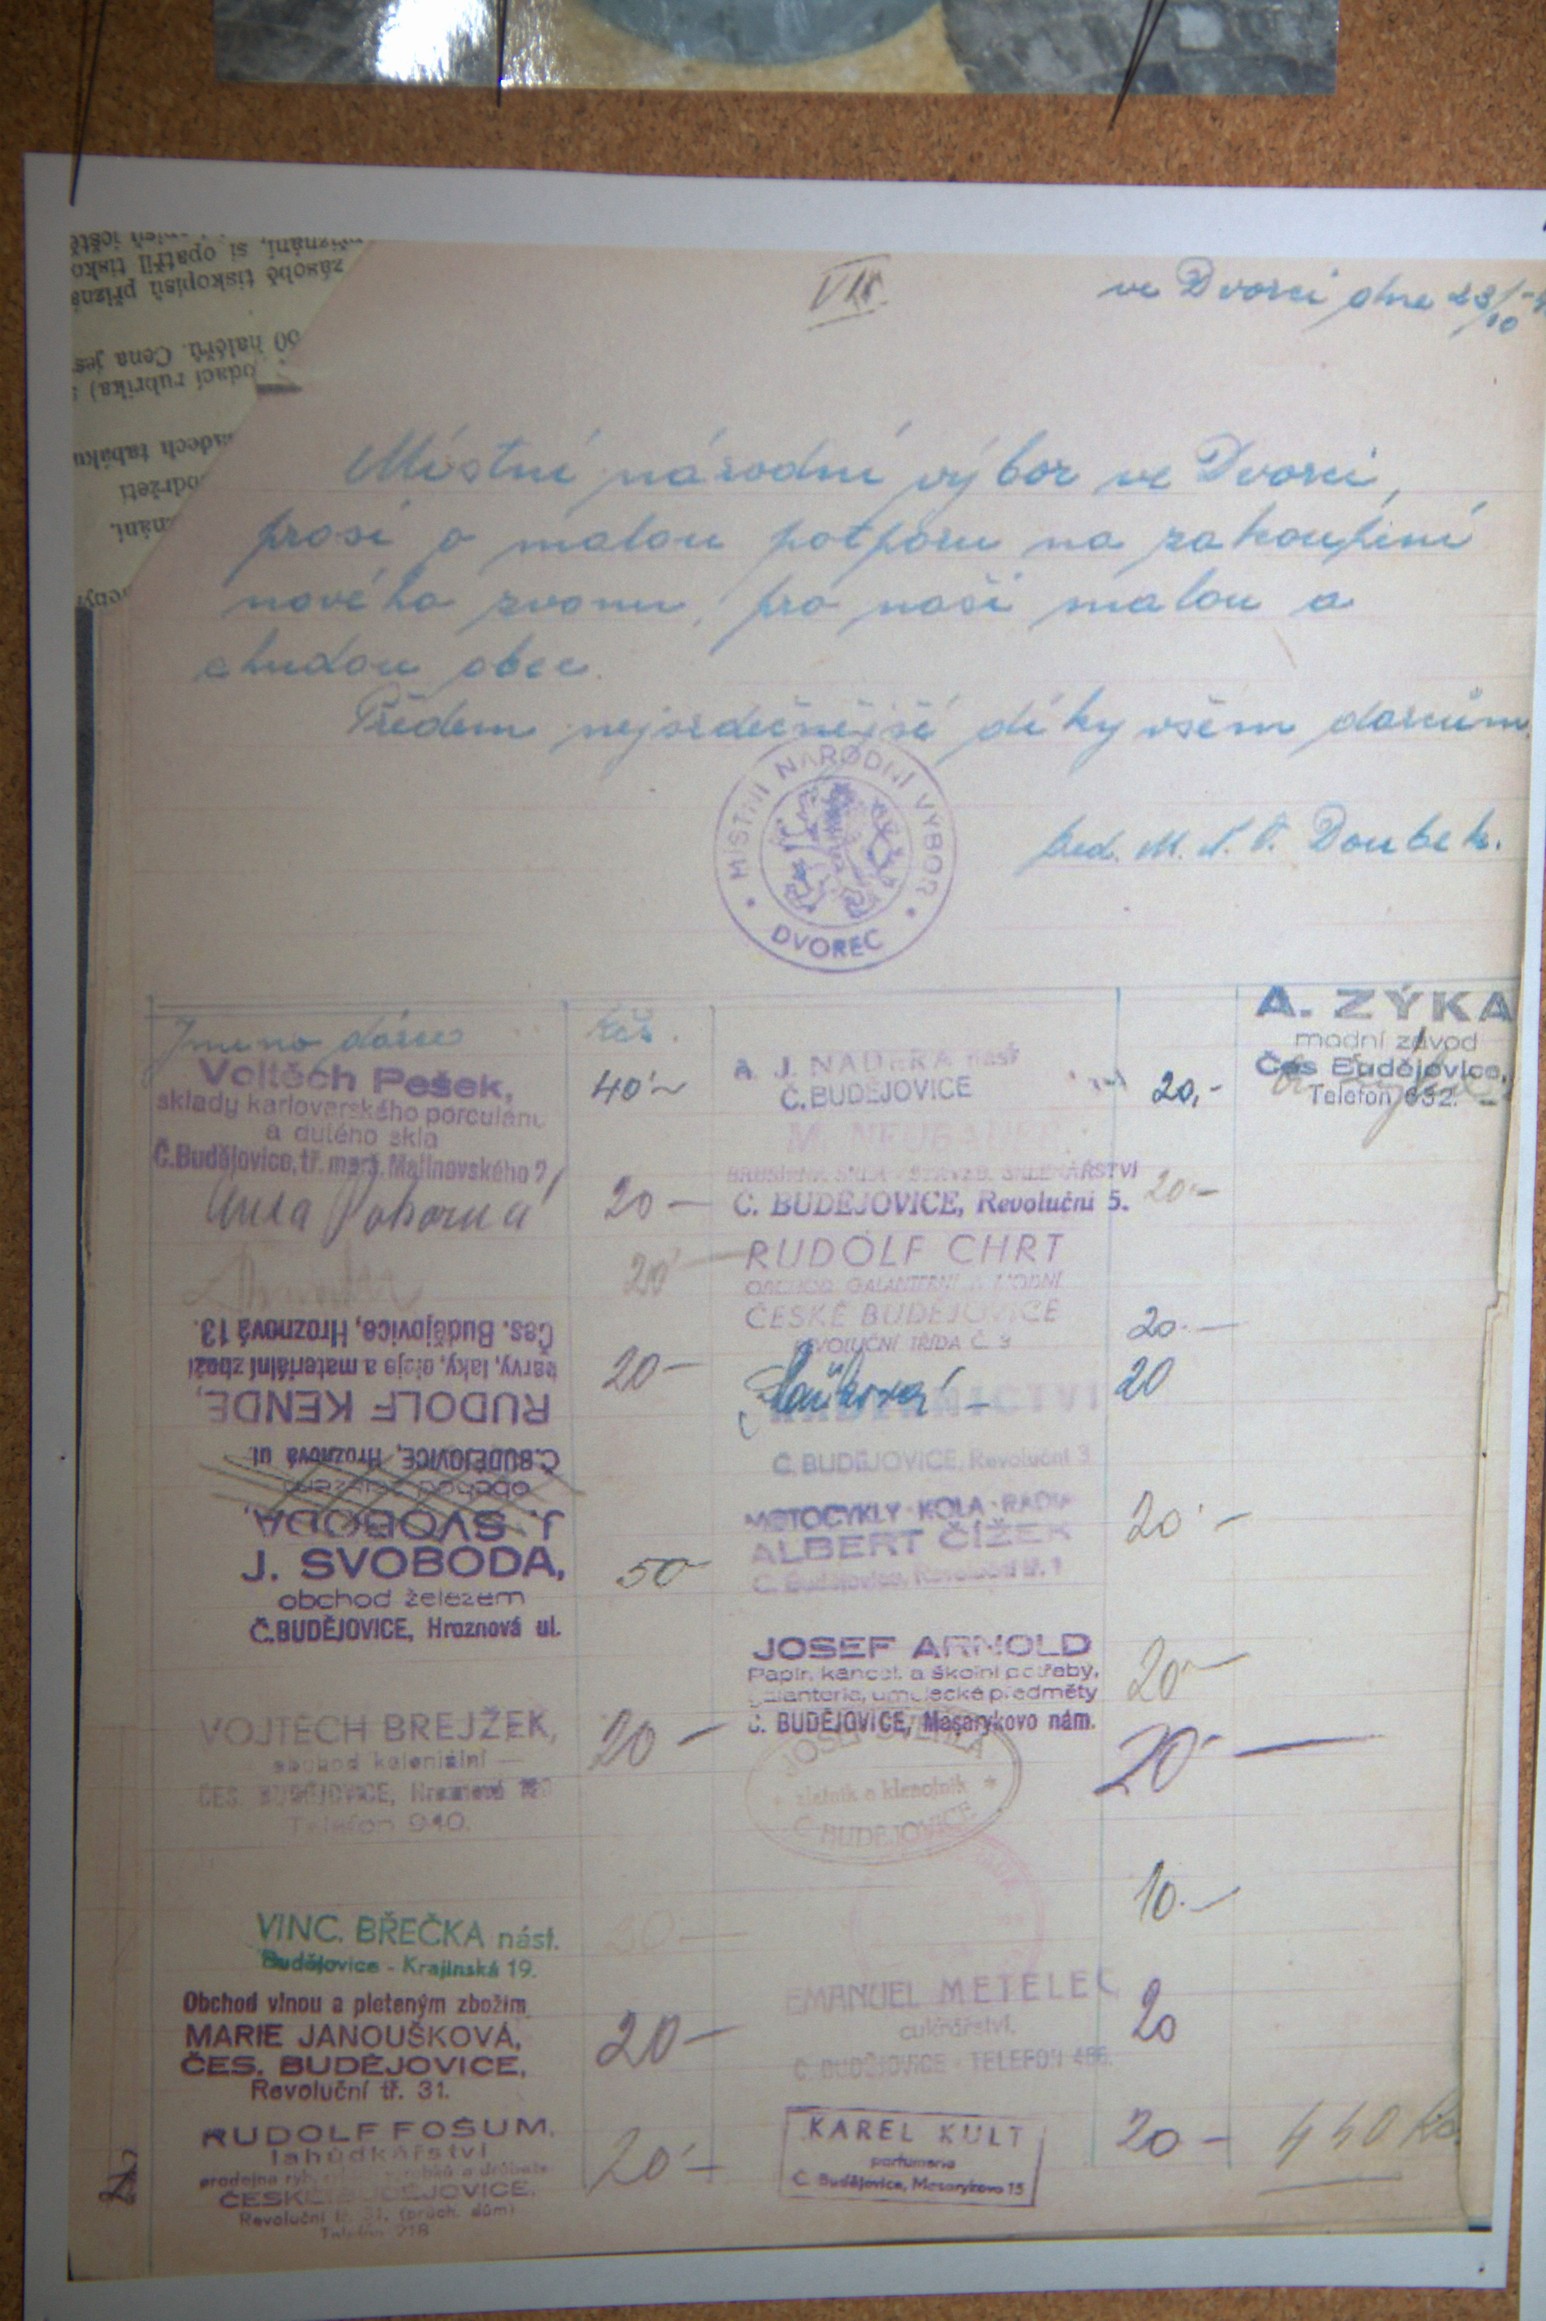 VII.
ve Dvorci dne 23/10
Místní národní výbor ve Dvorci,
prosí o malou potporu na zakoupení
nového zvonu, pro naši malou a
chudou obec.
Předem nejsrdečnější díky všem dárcům.
MÍSTNÍ NÁRODNÍ VÝBOR
DVOREC
před. M. N. V. Doubek.
Jméno dárce
Kčs.
Vojtěch Pešek,
sklady karlovarského porculánu
a dutého skla
Č.Budějovice, tř. marš. Malinovského
40'~
Anna Pohorná
20 —
20' —
Čes. Budějovice, Hroznová 13.
barvy, laky, oleje a materiální zboží
RUDOLF KENDE,
20 —
Č.BUDĚJOVICE, Hroznová ul.
obchod železem
J. SVOBODA,
J. SVOBODA,
obchod železem
Č.BUDĚJOVICE, Hroznová ul.
50
VOJTĚCH BREJŽEK,
obchod koloniální
ČES. BUDĚJOVICE, Hroznová
Telefon 940.
20 —
VINC. BŘEČKA nást.
Budějovice - Krajinská 19.
20 —
Obchod vlnou a pleteným zbožím
MARIE JANOUŠKOVÁ,
ČES. BUDĚJOVICE,
Revoluční tř. 31.
20 —
RUDOLF FOŠUM,
lahůdkářství
prodejna ryb, výrobků a drůbeže
ČESKÉ BUDĚJOVICE,
Revoluční tř. 31. (průch. dům)
Telefon 218
20' —
A. J. NADĚRA nást
Č.BUDĚJOVICE
20,-
M. NEUBAUER
Č. BUDĚJOVICE, Revoluční 5.
20 —
RUDOLF CHRT
OBCHOD GALANTERNÍ A MÓDNÍ
ČESKÉ BUDĚJOVICE
REVOLUČNÍ TŘÍDA Č. 9
20 —
20
Č. BUDĚJOVICE, Revoluční 3
MOTOCYKLY - KOLA - RADIA
ALBERT ČÍŽEK
Č. Budějovice, Revoluční tř. 1
20' —
JOSEF ARNOLD
Papír, kancel. a školní potřeby,
galanterie, umělecké předměty
Č. BUDĚJOVICE, Masarykovo nám.
20 —
JOSEF
zlatník a klenotník
Č. BUDĚJOVICE
20' —
10.-
EMANUEL METELEC
cukrářství,
Č. BUDĚJOVICE - TELEFON 486.
20
KAREL KULT
parfumerie
Č. Budějovice, Masarykovo 15
20 —
A. ZÝKA
modní závod
Čes Budějovice,
Telefon 632.
440 Kčs.